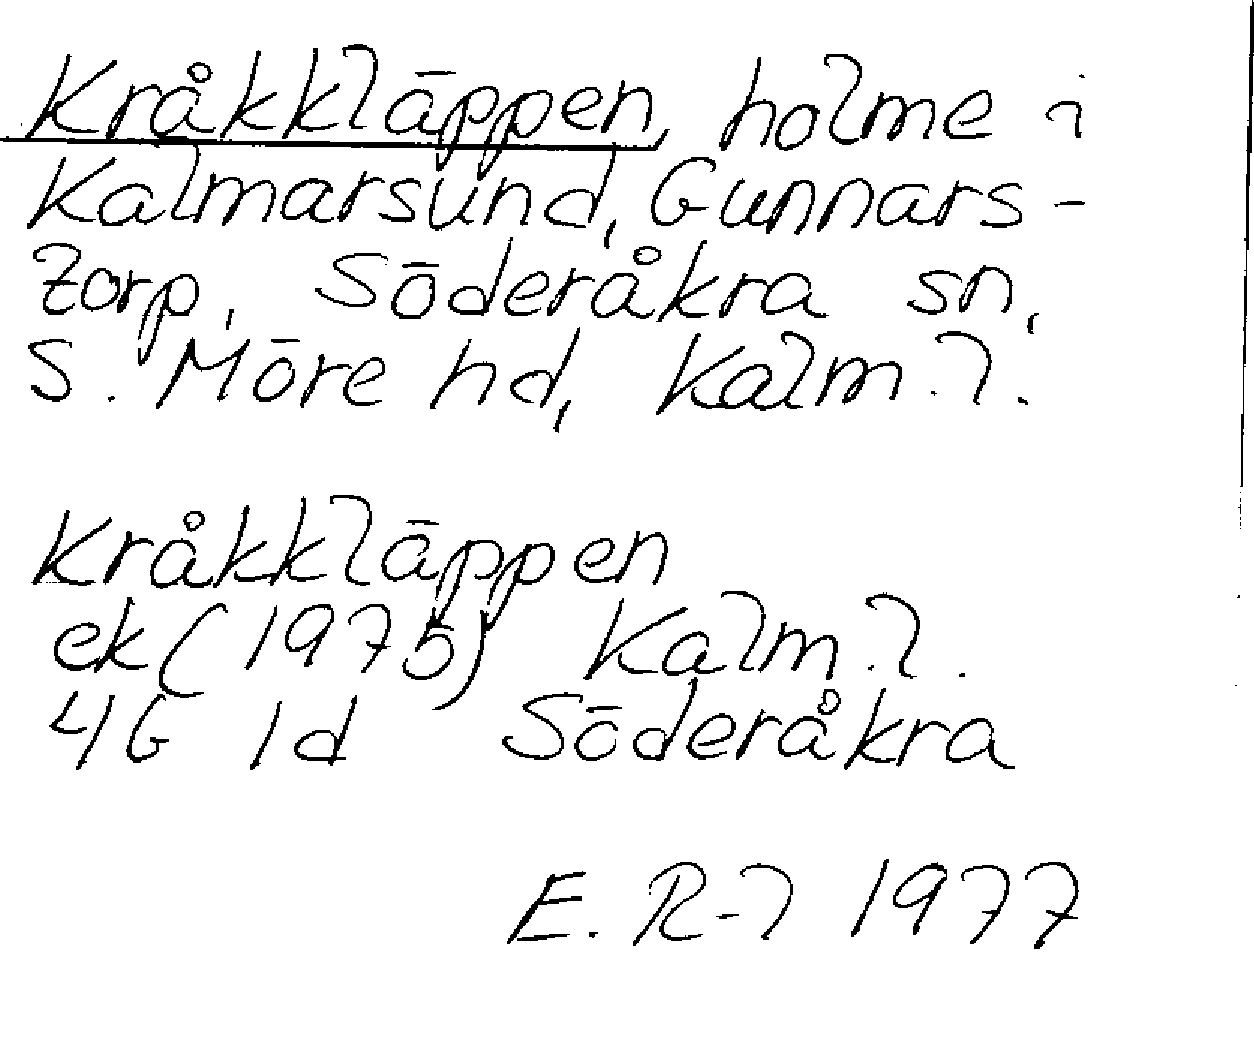 Kråkkläppen, holme i
Kalmarsund, Gunnars-
torp, Söderåkra sn,
S. Möre hd, Kalm. l.
Kråkkläppen
ek (1975) Kalm. l.
4G 1d Söderåkra
E. R-l 1977